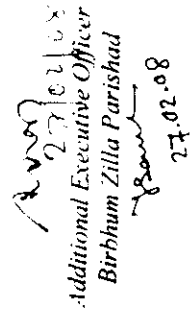 27/02/08
Additional Executive Officer
Birbhum Zilla Parishad
27.02.08